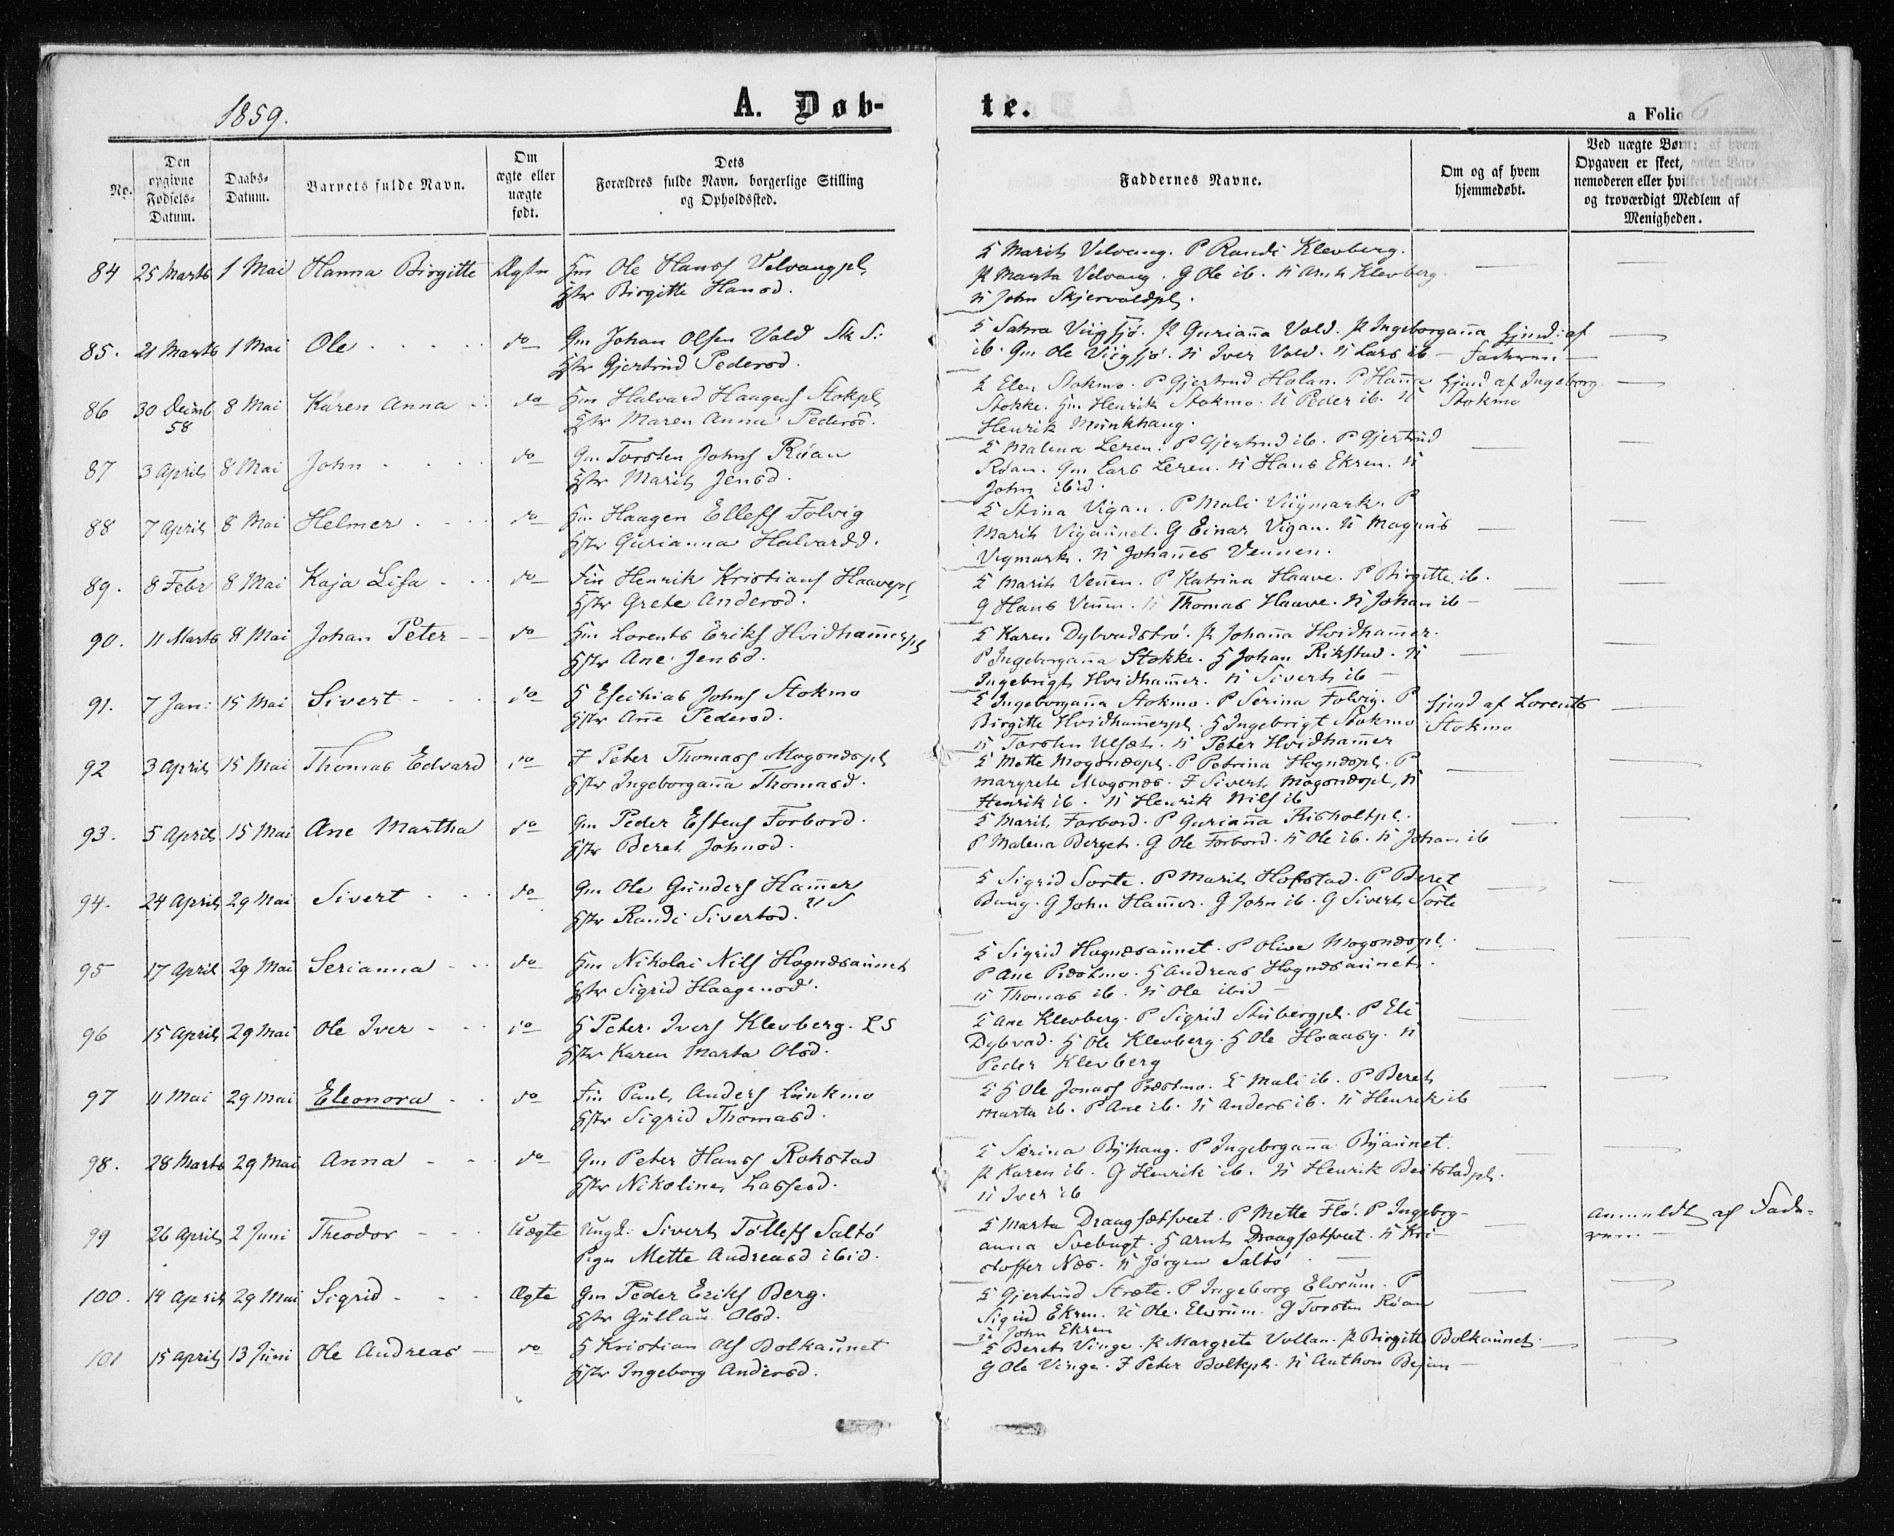 1859.
A. Døb-
te.
a Folio 6
No.
Den opgivne Fødsels-Datum.
Daabs-Datum.
Barnets fulde Navn.
Om ægte eller uægte født.
Dets Forældres fulde Navn, borgerlige Stilling og Opholdssted.
Faddernes Navne.
Om og af hvem hjemmedøbt.
Ved uægte Børn: af hvem Opgaven er skeet, enten Barnemoderen eller hvilket bekjendt og troværdigt Medlem af Menigheden.
84 25 Marts 1 Mai Hanna Birgitte Ægte Hm Ole Hanss Velvangpl
Hstr Birgitte Hansd.
K Marit Velvang. P Randi Klevberg.
P Marta Velvang. G Ole ib. N Arnt Klevberg
N John Skjervoldpl.
85. 21 Marts 1 Mai Ole do Gm Johan Olsen Vold
Hstr Gjertrud Pedersd.
Guriaña Vold. Ingeborgaña
ib. Gm Ole N Iver Vold. N Lars ib
Hjmd: af Faderen
86 30 Decemb 58 8 Mai Karen Anna do Hm Halvard Haagens Stokpl
Hstr Maren Anna Pedersd.
K Elen Stokmo. P Gjertrud Holan. P Hanna
Stokke. Hm Henrik Stokmo. N Peder ib. N
Henrik Munkhaug.
Hjmd af Ingeborg Stokmo
87 3 April 8 Mai John do Gm Torsten Johns Røan
Hstr Marit Jensd.
K Malena Leren. P Gjertrud ib. P Gjertrud
Røan. Gm Lars Leren. N Hans Ekren. N
John ibid.
88 7 April 8 Mai Helmer do Hm Haagen Ellefs Folvig
Hstr Gurianna Halvardd.
K Stina Vigan. P Mali Viigmark. P
Marit Vigaunet. G Einar Vigan. N Magnus
Vigmark. N Johañes Vennen.
89. 8 Febr 8 Mai Kaja Lisa do Fin Henrik Kristians Haavepl
Hstr Grete Andersd.
K Marit Veñen. P Katrina Haave. P Birgitte ib.
G Hans Veñen. N Thomas Haave. N Johan ib
90. 11 Marts 8 Mai Johan Peter do Hm Lorents Eriks Hvidhamerpl
Hstr Ane Jensd.
K Karen Dybvadstrø. P Johaña Hvidhamer.
P Ingeborgaña Stokke. H Johan Rikstad. N
Ingebrigt Hvidhamer. N Sivert ib
91. 7 Jan: 15 Mai Sivert do H Esechias Johns Stokmo
Hstr Añe Pedersd.
K Ingeborgaña Stokmo. P Serina Folvig. P
Birgitte Hvidhamerpl. H Ingebrigt Stokmo
N Torsten Ulset. N Peter Hvidhamer
Hjmd af Lorents Stokmo
92 3 April 15 Mai Thomas Edvard do F Peter Thomass Mogonæspl
Hstr Ingeborgaña Thomasd.
K Mette Mogonæspl. P Petrina Hognæspl. P
Margrete Mogonæs. F Sivert Mogonæspl, N
Henrik ib. N Henrik Nils ib
93. 5 April 15 Mai Ane Martha do Gm Peder Estens Forbord.
Hstr Beret Johnsd.
K Marit Forbord. P Guriaña Risholtpl.
P Malena Berget. G Ole Forbord. N Ole ib. N Johan ib
94. 24 April 29 Mai Sivert do Gm Ole Gunders Hamer
Hstr Randi Sivertsd.
K Sigrid Sorte. P Marit Hofstad. P Beret
Baug. G John Hamer. G John ib. G Sivert Sorte
95 17 April 29 Mai Serianna do Hm Nikolai Nils Hognæsaunet
Hstr Sigrid Haagensd.
K Sigrid Hognæsaunet. P Olive Mogonæspl.
P Ane Præstmo. H Andreas Hognæsaunet.
N Thomas ib. N Ole ibid
96 15 April 29 Mai Ole Iver do H Peter Ivers Klevberg.
Hstr Karen Marta Olsd.
K Ane Klevberg. P Sigrid Stubergpl. P Eli
Dybvad. H Ole Klevberg. H Ole Hvaasg. N
Peder Klevberg
97 11 Mai 29 Mai Eleonora do Fin Paul Anders Lunkmo
Hstr Sigrid Thomasd.
H Ole Jonass Præstmo. K Mali ib. P Beret
Marta ib. P Ane ib. N Anders ib. N Henrik ib
98. 28 Marts 29 Mai Anna do Gm Peter Hanss Rokstad
Hstr Nikoline Lassesd.
K Særina Byhaug. P Ingeborgaña Byaunet
P Karen ib. G Henrik ib. N Henrik Beitstadpl.
N Iver ib
99 26 April 2 Juni Theodor Uægte Ungk: Sivert Tollefs Saltø
Pige Mette Andreasd ibid.
K Marta Draagsætsveet. P Mette Flø. P Ingeborg-
anna Svebugt. H Arnt Draagsætsveet. N Kri-
stoffer Næs. N Jørgen Saltø
anmeldt af Fade-
ren
100. 14 April 29 Mai Sigrid Ægte Gm Peder Eriks Berg.
Hstr Gullau Olsd.
K Gjertrud Stræte. P Ingeborg Elvrum. P
Sigrid Ekren. N Ole Elvrum. G Torsten Røan
N John Ekren
101 15 April 13 Juni Ole Andreas do H Kristian Ols Bolkaunet
Hstr Ingeborg Andersd.
K Beret Vinge. P Margrete Vollan. P Birgitte Bolkaunet.
G Ole Vinge. F Peter Bolkpl. N Anthon Bejan